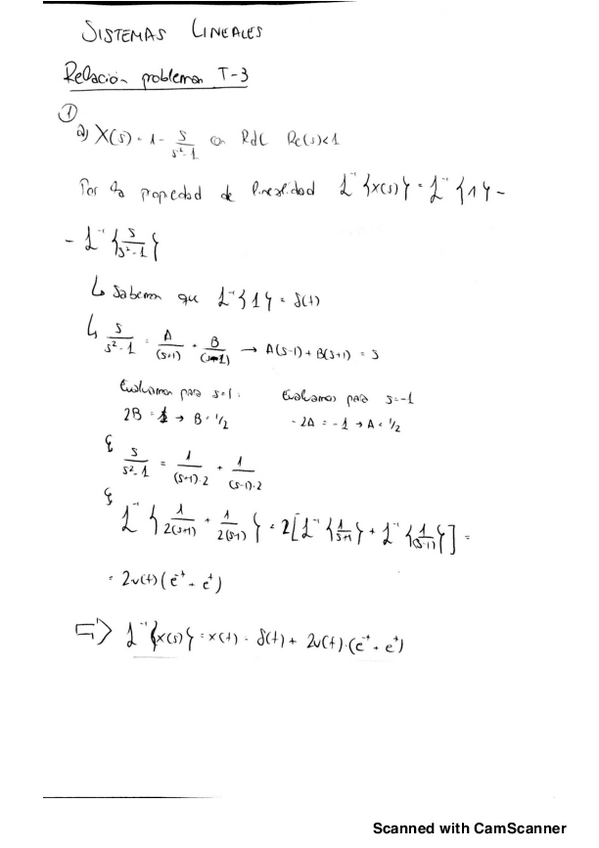 SISTEMAS LINEALES
Relación problemas T-3
①
a) X(s) = 1 - s/(s²-1) con RdC Re(s)<1
Por la propiedad de linealidad L⁻¹{X(s)} = L⁻¹{1} -
- L⁻¹{s/(s²-1)}
↳ Sabemos que L⁻¹{1} = δ(t)
↳ s/(s²-1) = A/(s+1) + B/(s-1) → A(s-1) + B(s+1) = s
Evaluamos para s=1: Evaluamos para s=-1
2B = 1 → B = 1/2 -2A = -1 → A = 1/2
s/(s²-1) = 1/((s+1)·2) + 1/((s-1)·2)
L⁻¹{1/(2(s+1)) + 1/(2(s-1))} = 2[L⁻¹{1/(s+1)} + L⁻¹{1/(s-1)}] =
= 2u(t)(e⁻ᵗ + eᵗ)
⇒ L⁻¹{X(s)} = x(t) = δ(t) + 2u(t)·(e⁻ᵗ + eᵗ)
Scanned with CamScanner